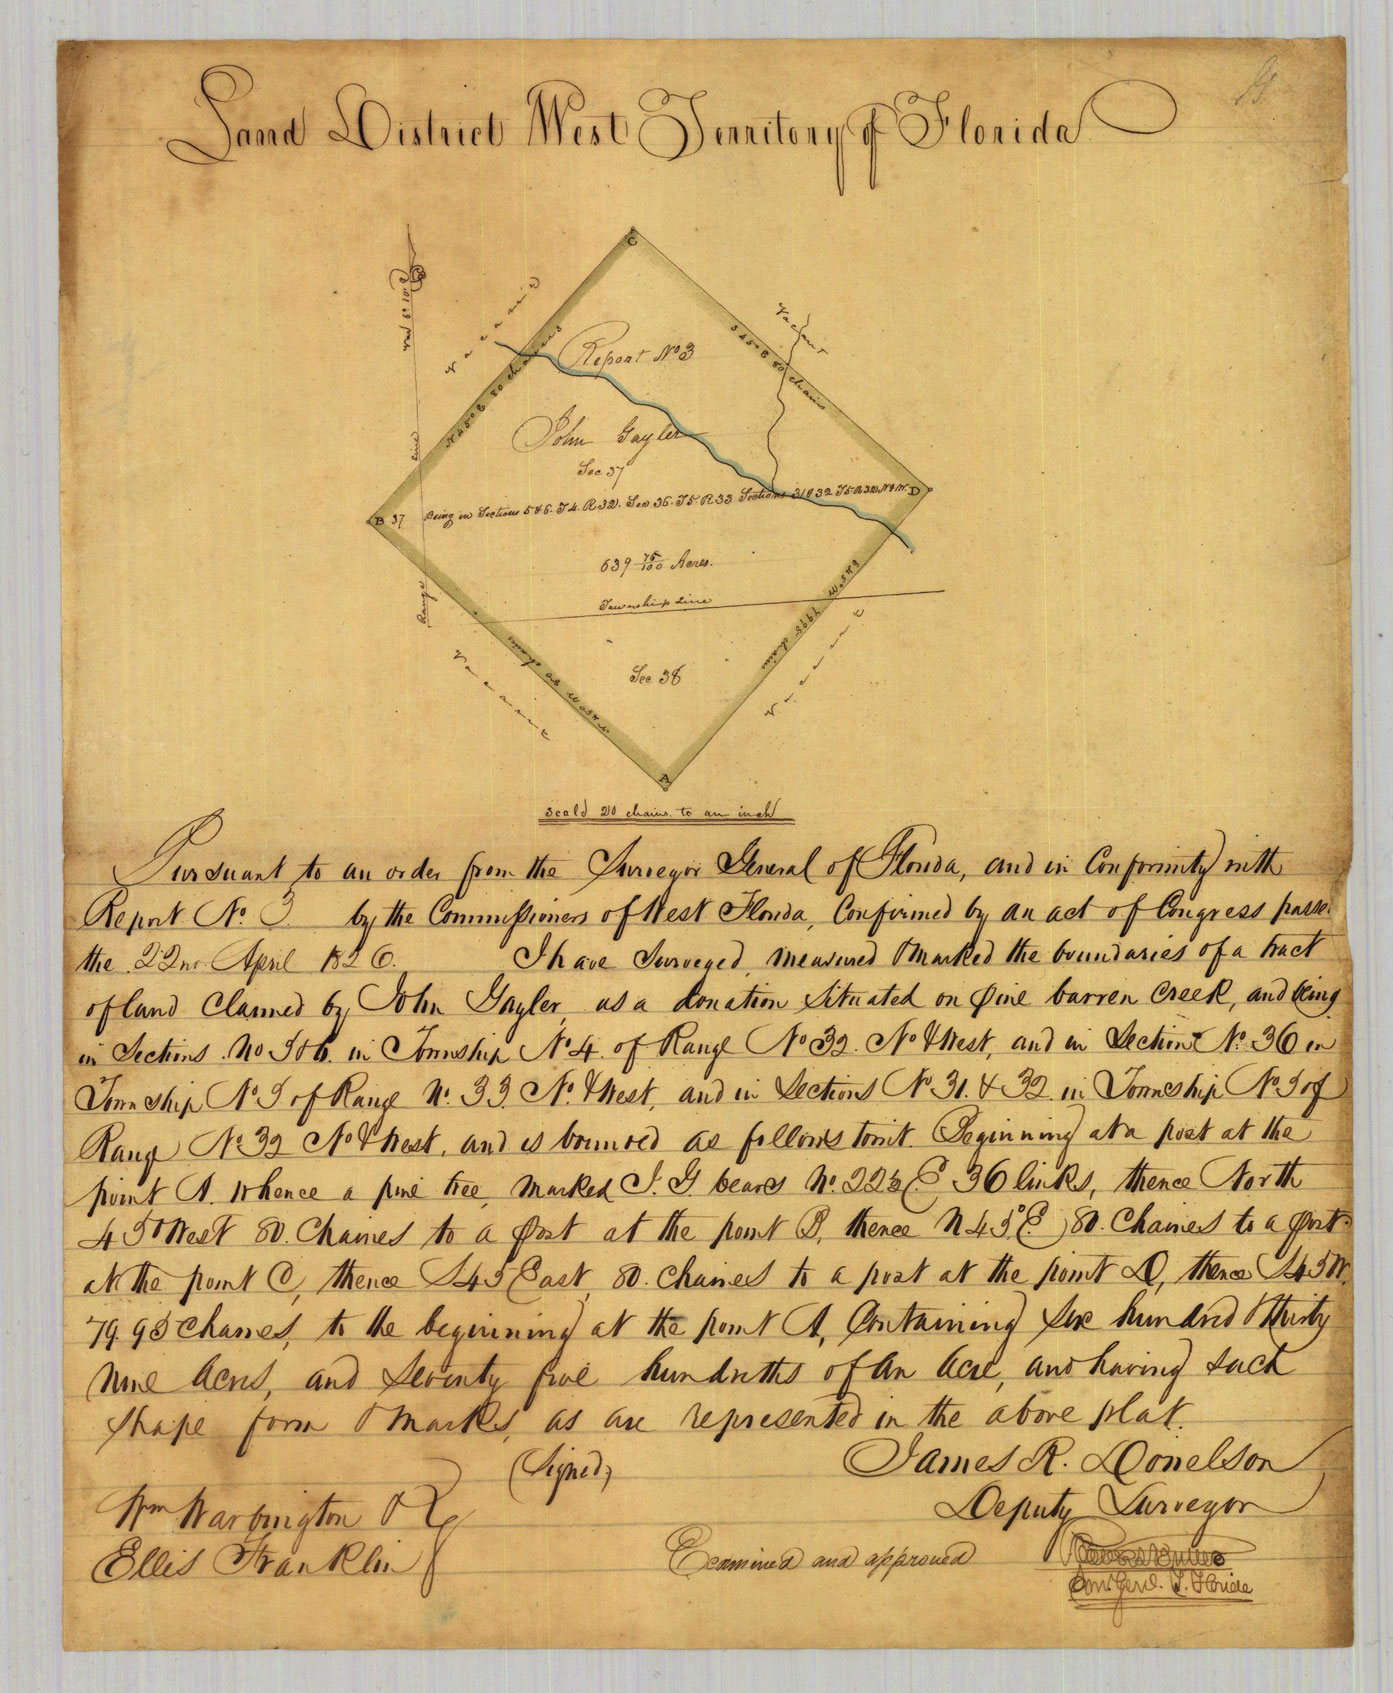 Land District West Territory of Florida
C
Var 6°10' E
Vacant
Vacant
Report No 3
N 45° E 80 chains
S 45° E 80 chains
John Gayler
Line
Sec 37
B 37 Being in Sections 5 & 6. T4. R32. Sec 36. T5. R33 Sections 31 & 32 T5 R32 N & W. D
639 75/100 Acres.
S 45° W 79 95 chains
Range
Township Line
Vacant
Vacant
N 45° W 80 chains
Sec 38
A
Scale 20 chains to an inch
Pursuant to an order from the Surveyor General of Florida, and in Conformity with
Report No. 3 by the Commissioners of West Florida, Confirmed by an act of Congress passed
the 22nd April 1826. I have Surveyed, measured & marked the boundaries of a tract
of land Claimed by John Gayler, as a donation situated on Pine barren Creek, and being
in Sections No 5 & 6. in Township No 4. of Range No 32. No & West, and in Section No. 36 in
Township No 5 of Range No. 33. No. & West, and in Sections No 31. & 32 in Township No 5 of
Range No 32 No & West, and is bounded as follows towit. Beginning at a post at the
point A. whence a pine tree, marked J. G. bears No. 22½ E 36 links, thence North
45° West 80. Chaines to a Post at the point B, thence N 45° E. 80. Chaines to a Post
at the point C, thence S 45 East, 80. chaines to a post at the point D, thence S 45 W.
79.95 chaines, to the beginning at the point A, Containing Six hundred & thirty
nine Acres, and Seventy five hundreths of an Acre, and having such
shape form & marks, as are represented in the above plat.
(Signed) James R. Donelson
Deputy Surveyor
Wm Warbington
Ellis Franklin
Examined and approved
Sur. Genl. T. Florida